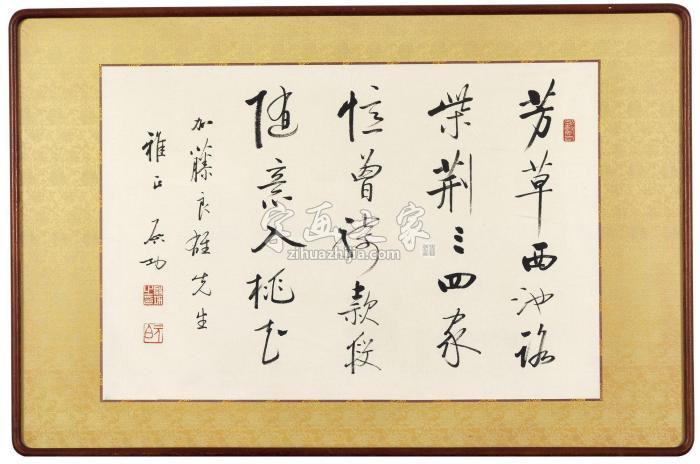 芳草西池路
柴荆三四家
憶曾騎款段
随意入桃花
加藤良雄先生
雅正 启功
元白
字画之家
zihuazhijia.com